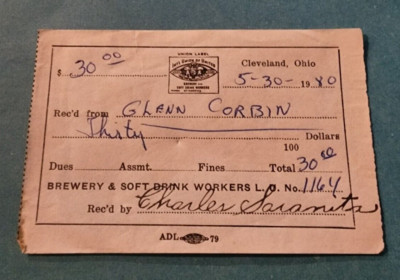 UNION LABEL
$ 30 00 Cleveland, Ohio
5-30- 1980
Rec'd from GLENN CORBIN
Thirty Dollars
100
Dues Assmt. Fines Total 30 00
BREWERY & SOFT DRINK WORKERS L. U. No. 1164
Rec'd by Charles Saranita
ADL 79